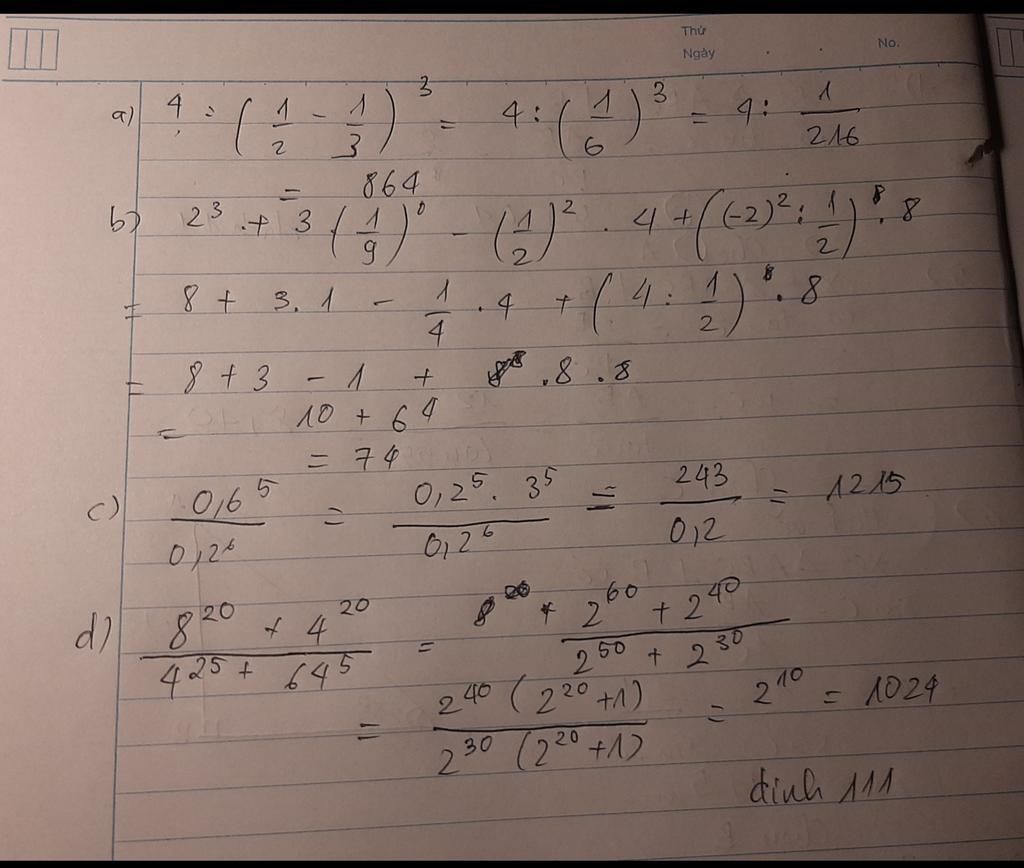 Thứ
Ngày . . No.
a) 4 : (1/2 - 1/3)^3 = 4 : (1/6)^3 = 4 : 1/216
= 864
b) 2^3 + 3 . (1/9)^0 - (1/2)^2 . 4 + ((-2)^2 : 1/2) . 8
= 8 + 3 . 1 - 1/4 . 4 + (4 : 1/2) . 8
= 8 + 3 - 1 + 8 . 8
= 10 + 64
= 74
c) 0,6^5/0,2^6 = 0,2^5 . 3^5/0,2^6 = 243/0,2 = 1215
d) 8^20 + 4^20/4^25 + 64^5 = 2^60 + 2^40/2^50 + 2^30
= 2^40 (2^20 + 1)/2^30 (2^20 + 1) = 2^10 = 1024
đinh 111